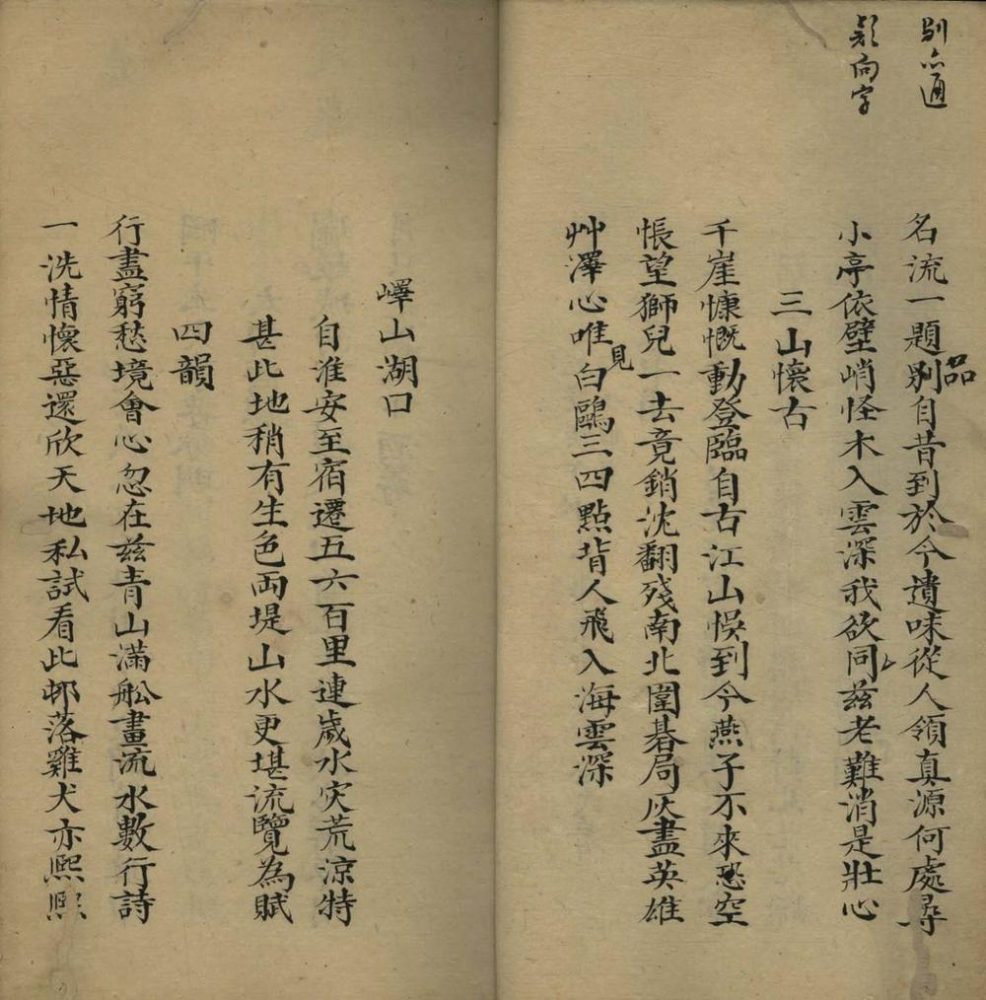 別亦通
疑向字
名流一題別自昔到於今遺味從人領真源何處尋
品
小亭依壁峭怪木入雲深我欲同茲老難消是壯心
三山懷古
千崖慷慨動登臨自古江山悞到今燕子不來恐空
悵望獅兒一去竟銷沈翻殘南北圍碁局灰盡英雄
艸澤心唯白鷗三四點背人飛入海雲深
見
嶧山湖口
自淮安至宿遷五六百里連歲水灾荒涼特
甚此地稍有生色兩堤山水更堪流覽為賦
四韻
行盡窮愁境會心忽在茲青山滿舩畫流水數行詩
一洗情懷惡還欣天地私試看此邨落雞犬亦熙熙